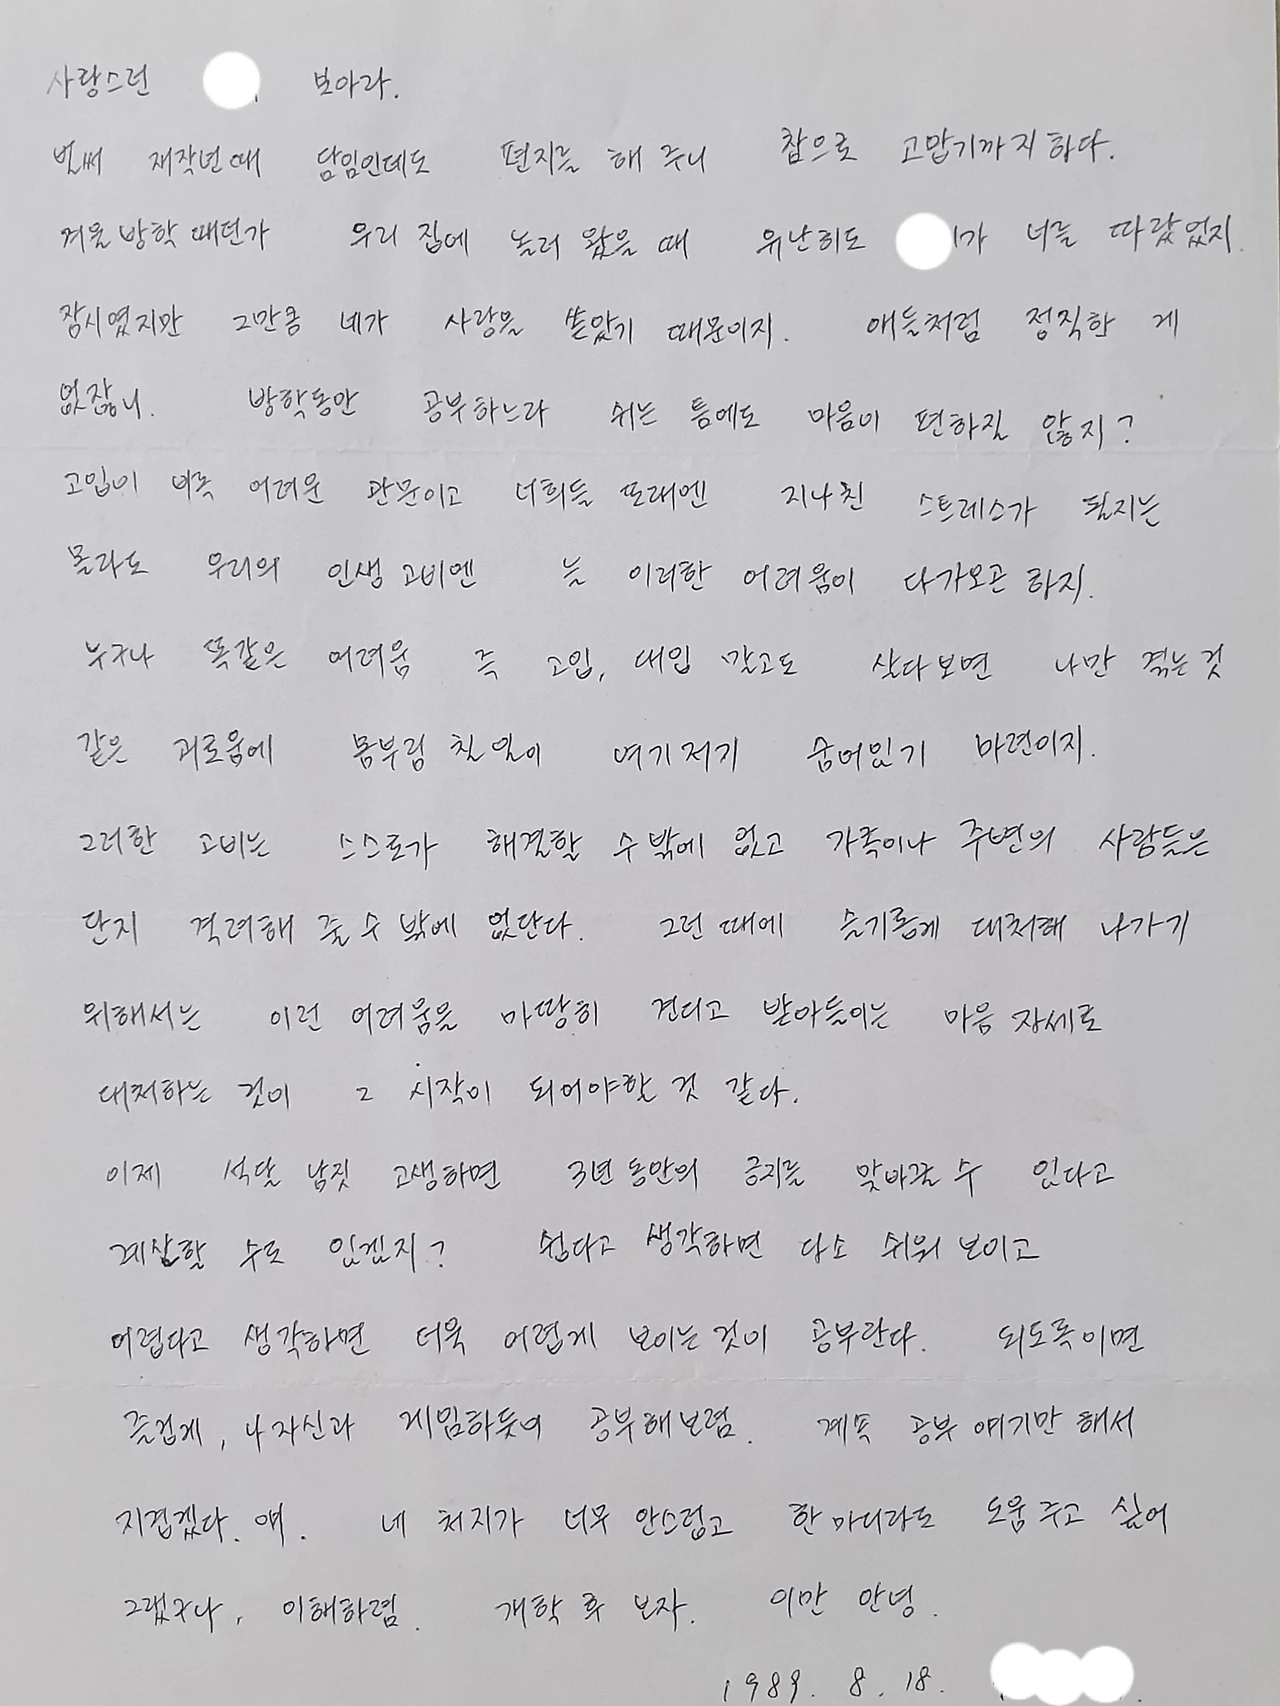 사랑스런 보아라.
벌써 재작년때 담임인데도 편지를 해 주니 참으로 고맙기까지하다.
겨울방학때던가 우리 집에 놀러 왔을 때 유난히도 가 너를 따랐었지.
잠시였지만 그만큼 네가 사랑을 쏟았기 때문이지. 애들처럼 정직한 게
없잖니. 방학동안 공부하느라 쉬는 틈에도 마음이 편하질 않지?
고입이 비록 어려운 관문이고 너희들 또래엔 지나친 스트레스가 될지는
몰라도 우리의 인생고비엔 늘 이러한 어려움이 다가오곤 하지.
누구나 똑같은 어려움 즉 고입, 대입 말고도 살다보면 나만 겪는것
같은 괴로움에 몸부림 칠 일이 여기저기 숨어있기 마련이지.
그러한 고비는 스스로가 해결할 수 밖에 없고 가족이나 주변의 사람들은
단지 격려해 줄 수 밖에 없단다. 그런 때에 슬기롭게 대처해 나가기
위해서는 이런 어려움을 마땅히 견디고 받아들이는 마음 자세로
대처하는 것이 그 시작이 되어야할 것 같다.
이제 석달 남짓 고생하면 3년 동안의 긍지를 맞바꿀 수 있다고
계산할 수도 있겠지? 쉽다고 생각하면 다소 쉬워 보이고
어렵다고 생각하면 더욱 어렵게 보이는것이 공부란다. 되도록이면
즐겁게, 나 자신과 게임하듯이 공부해보렴. 계속 공부 얘기만 해서
지겹겠다. 얘. 네 처지가 너무 안스럽고 한마디라도 도움주고 싶어
그랬구나, 이해하렴. 개학 후 보자. 이만 안녕.
1989. 8. 18.